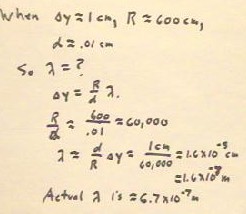 When Δy ≈ 1 cm, R ≈ 600 cm,
d ≈ .01 cm
So λ = ?
Δy = R/d λ.
R/d ≈ 600/.01 ≈ 60,000
λ ≈ d/R Δy ≈ 1cm/60,000 ≈ 1.6 x 10^-5 cm
≈ 1.6 x 10^-7 m
Actual λ is ≈ 6.7 x 10^-7 m